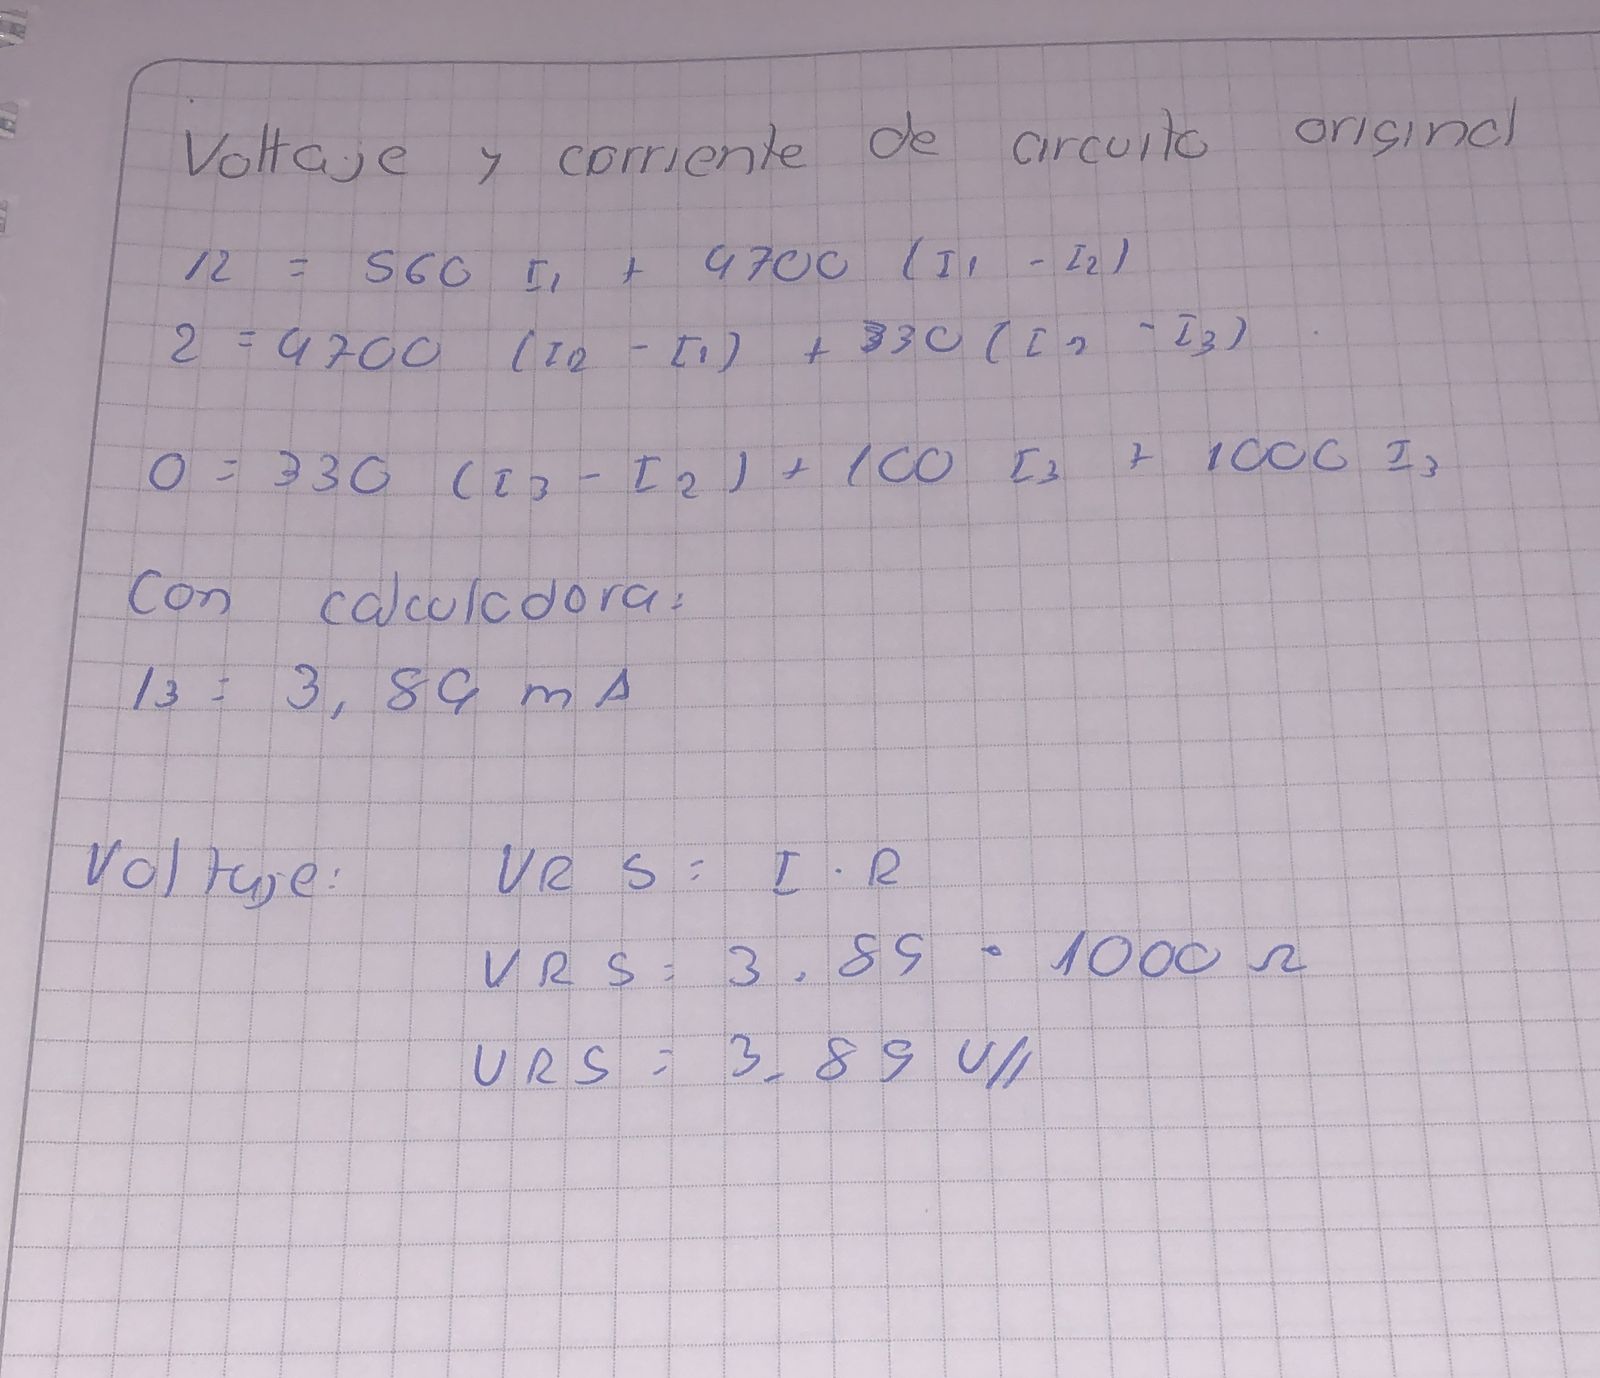 Voltaje y corriente de circuito original
12 = 560 I1 + 4700 (I1 - I2)
2 = 4700 (I2 - I1) + 330 (I2 - I3)
0 = 330 (I3 - I2) + 100 I3 + 1000 I3
Con calculadora:
I3 = 3,89 mA
Voltaje: VR5 = I · R
VR5 = 3.89 · 1000 Ω
VR5 = 3.89 V//